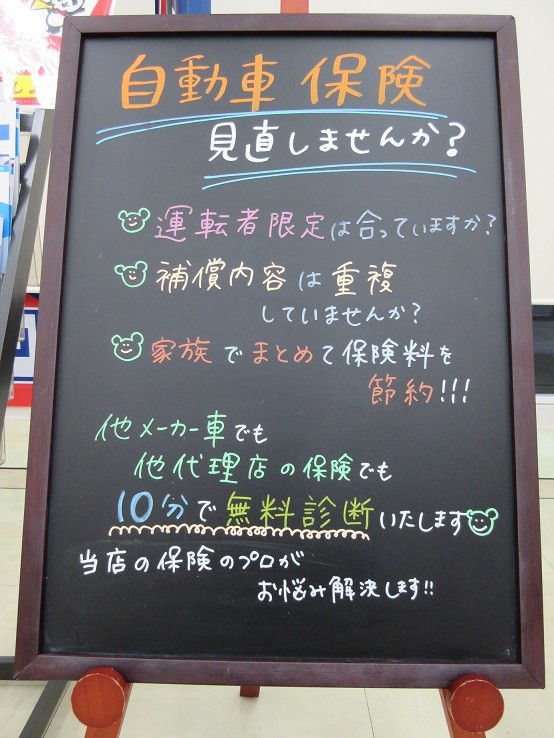 自動車保険
見直しませんか?
運転者限定は合っていますか?
補償内容は重複
していませんか?
家族でまとめて保険料を
節約!!!
他メーカー車でも
他代理店の保険でも
10分で無料診断いたします
当店の保険のプロが
お悩み解決します!!